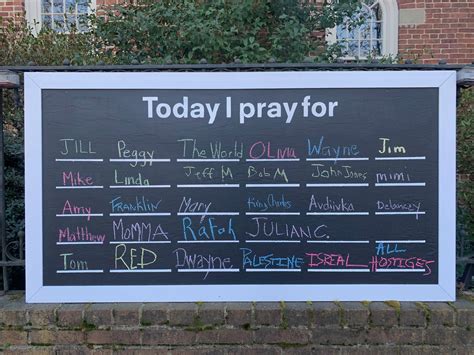 Today I pray for
JILL Peggy The World Olivia Wayne Jim
Mike Linda Jeff M Bob M John Jones mimi
Amy FRANKLIN Mary King Charles Avdiivka Delancey
Matthew MOMMA Rafah JULIAN C.
Tom RED Dwayne PALESTINE ISREAL ALL HOSTIGES